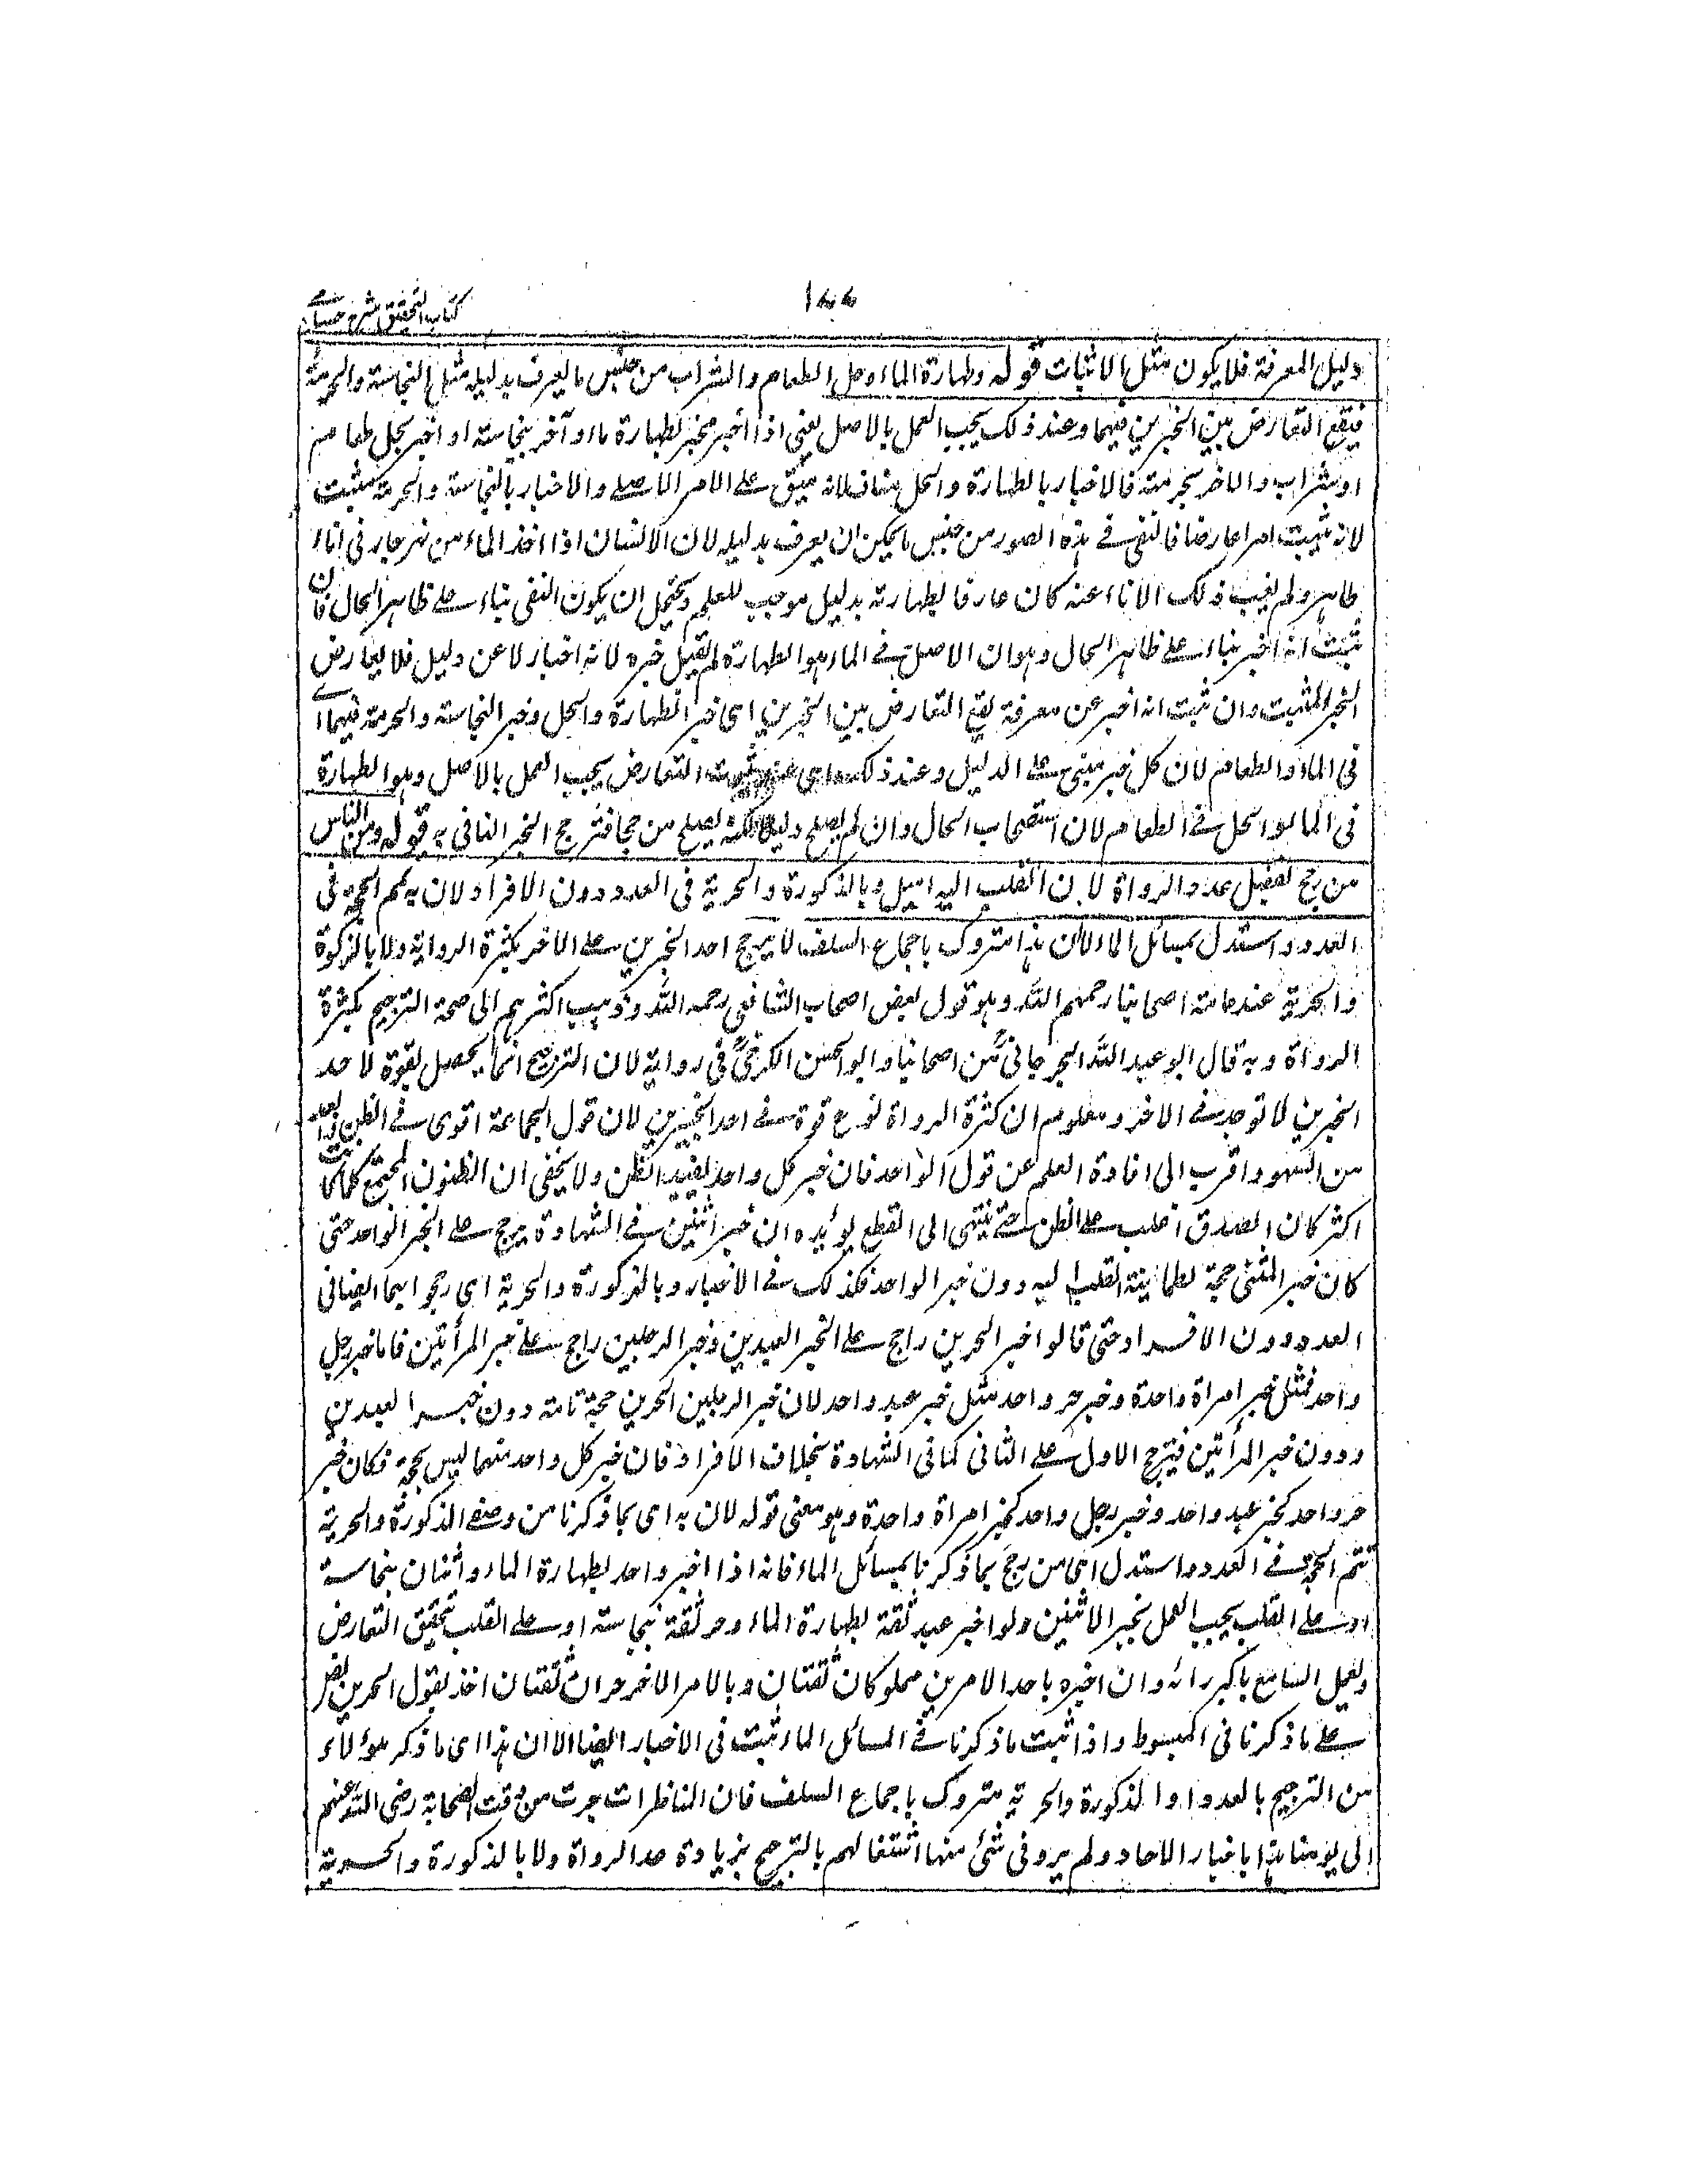 ١٧٧
كتاب التحقيق شرح حسامے
دليل المعرفة فلا يكون مثل الاثبات قوله وطهارة الماء وحل الطعام والشراب من جنس ما يعرف بدليله مثل النجاسة والحرمة
فيقع التعارض بين الخبرين فيهما وعند ذلك يجب العمل بالاصل يعنى اذا اخبر مخبر بطهارة ماء وآخر بنجاسته او اخبر بحل طعام
او شراب والاخر بحرمته فالاخبار بالطهارة والحل مناف لانه مبق على الامر الاصلے والاخبار بالنجاسة والحرمة مثبت
لانه يثبت امرا عارضا فالنفى فے هذه الصور من جنس ما يمكن ان يعرف بدليله لان الانسان اذا اخذ الماء من نهر جار فى اناء
طاهر ولم يغيب ذلك الاناء عنه كان عارفا بطهارته بدليل موجب للعلم ويحتمل ان يكون النفى بناء على ظاهر الحال فان
ثبت انه اخبر بناء على ظاهر الحال وهو ان الاصل فے الماء هو الطهارة لم يقبل خبره لانه اخبار لا عن دليل فلا يعارض
الخبر المثبت وان ثبت انه اخبر عن معرفة يقع التعارض بين الخبرين اى خبر الطهارة والحل وخبر النجاسة والحرمة فيهما اے
فى الماء والطعام لان كل خبر مبنى على الدليل وعند ذلك اى عند ثبوت التعارض يجب العمل بالاصل وهو الطهارة
فى الماء والحل فے الطعام لان استصحاب الحال وان لم يصلح دليلا لكنه يصلح مرجحا فترجح الخبر النافى به قوله ومن الناس
من رجح بفضل عدد الرواة لان القلب اليه اميل وبالذكورة والحرية فى العدد دون الافراد لان به تتم الحجة فى
العدد واستدل بمسائل الماء الا ان هذا متروك باجماع السلف لا يرجح احد الخبرين على الاخر بكثرة الرواية ولا بالذكورة
والحرية عند عامة اصحابنا رحمهم الله وهو قول بعض اصحاب الشافعى رحمه الله وذهب اكثرهم الى صحة الترجيح بكثرة
الرواة وبه قال ابو عبد الله الجرجانى من اصحابنا وابو الحسن الكرخى فى رواية لان الترجيح انما يحصل بقوة لاحد
الخبرين لا توجد فے الاخر ومعلوم ان كثرة الرواة نوع قوة فے احد الخبرين لان قول الجماعة اقوى فے الظن وابعد
من السهو واقرب الى افادة العلم من قول الواحد فان خبر كل واحد يفيد الظن ولا يخفى ان الظنون المجتمع كلما كانت
اكثر كان الصدق اغلب على الظن حتى ينتهى الى القطع يؤيده ان خبر اثنين فے الشهادة يرجح على الخبر الواحد حتى
كان خبر المثنى حجة لطمانينة القلب اليه دون خبر الواحد فكذلك فے الاخبار وبالذكورة والحرية اى رجحوا بهما ايضا فى
العدد دون الافراد حتى قالوا خبر الحرين راجح على الخبر العبدين وخبر الرجلين راجح على خبر المرأتين فاما خبر رجل
واحد فمثل خبر امراة واحدة وخبر حر واحد مثل خبر عبد واحد لان خبر الرجلين الحرين حجة تامة دون خبر العبدين
ودون خبر المرأتين فيترجح الاول على الثانى كما فى الشهادة بخلاف الافراد فان خبر كل واحد منهما ليس بحجة فكان خبر
حر واحد كخبر عبد واحد وخبر رجل واحد كخبر امراة واحدة وهو معنى قوله لان به اى بما ذكرنا من وصفے الذكورة والحرية
تتم الحجة فے العدد واستدل اى من رجح بما ذكرنا بمسائل الماء فانه اذا اخبر واحد بطهارة الماء واثنان بنجاسته
او على القلب يجب العمل بخبر الاثنين ولو اخبر عبد ثقة بطهارة الماء وحر ثقة بنجاسته او على القلب يتحقق التعارض
ويعمل السامع باكبر رائه وان اخبره باحد الامرين مملوكان ثقتان وبالامر الاخر حران ثقتان اخذ بقول الحرين نص
على ما ذكرنا فى المبسوط واذا ثبت ما ذكرنا فے المسائل الماء ثبت فى الاخبار ايضا الا ان هذا اى ما ذكر هؤلاء
من الترجيح بالعدد او الذكورة والحرية متروك باجماع السلف فان المناظرات جرت من وقت الصحابة رضى الله عنهم
الى يومنا هذا باخبار الاحاد ولم يرو فى شئ منها اشتغالهم بالترجيح بزيادة عدد الرواة ولا بالذكورة والحرية